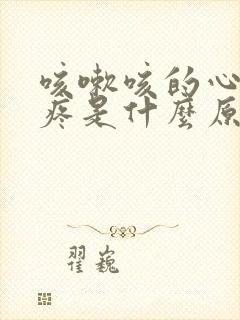 咳嗽咳的心
疼是什麼原
翟巍